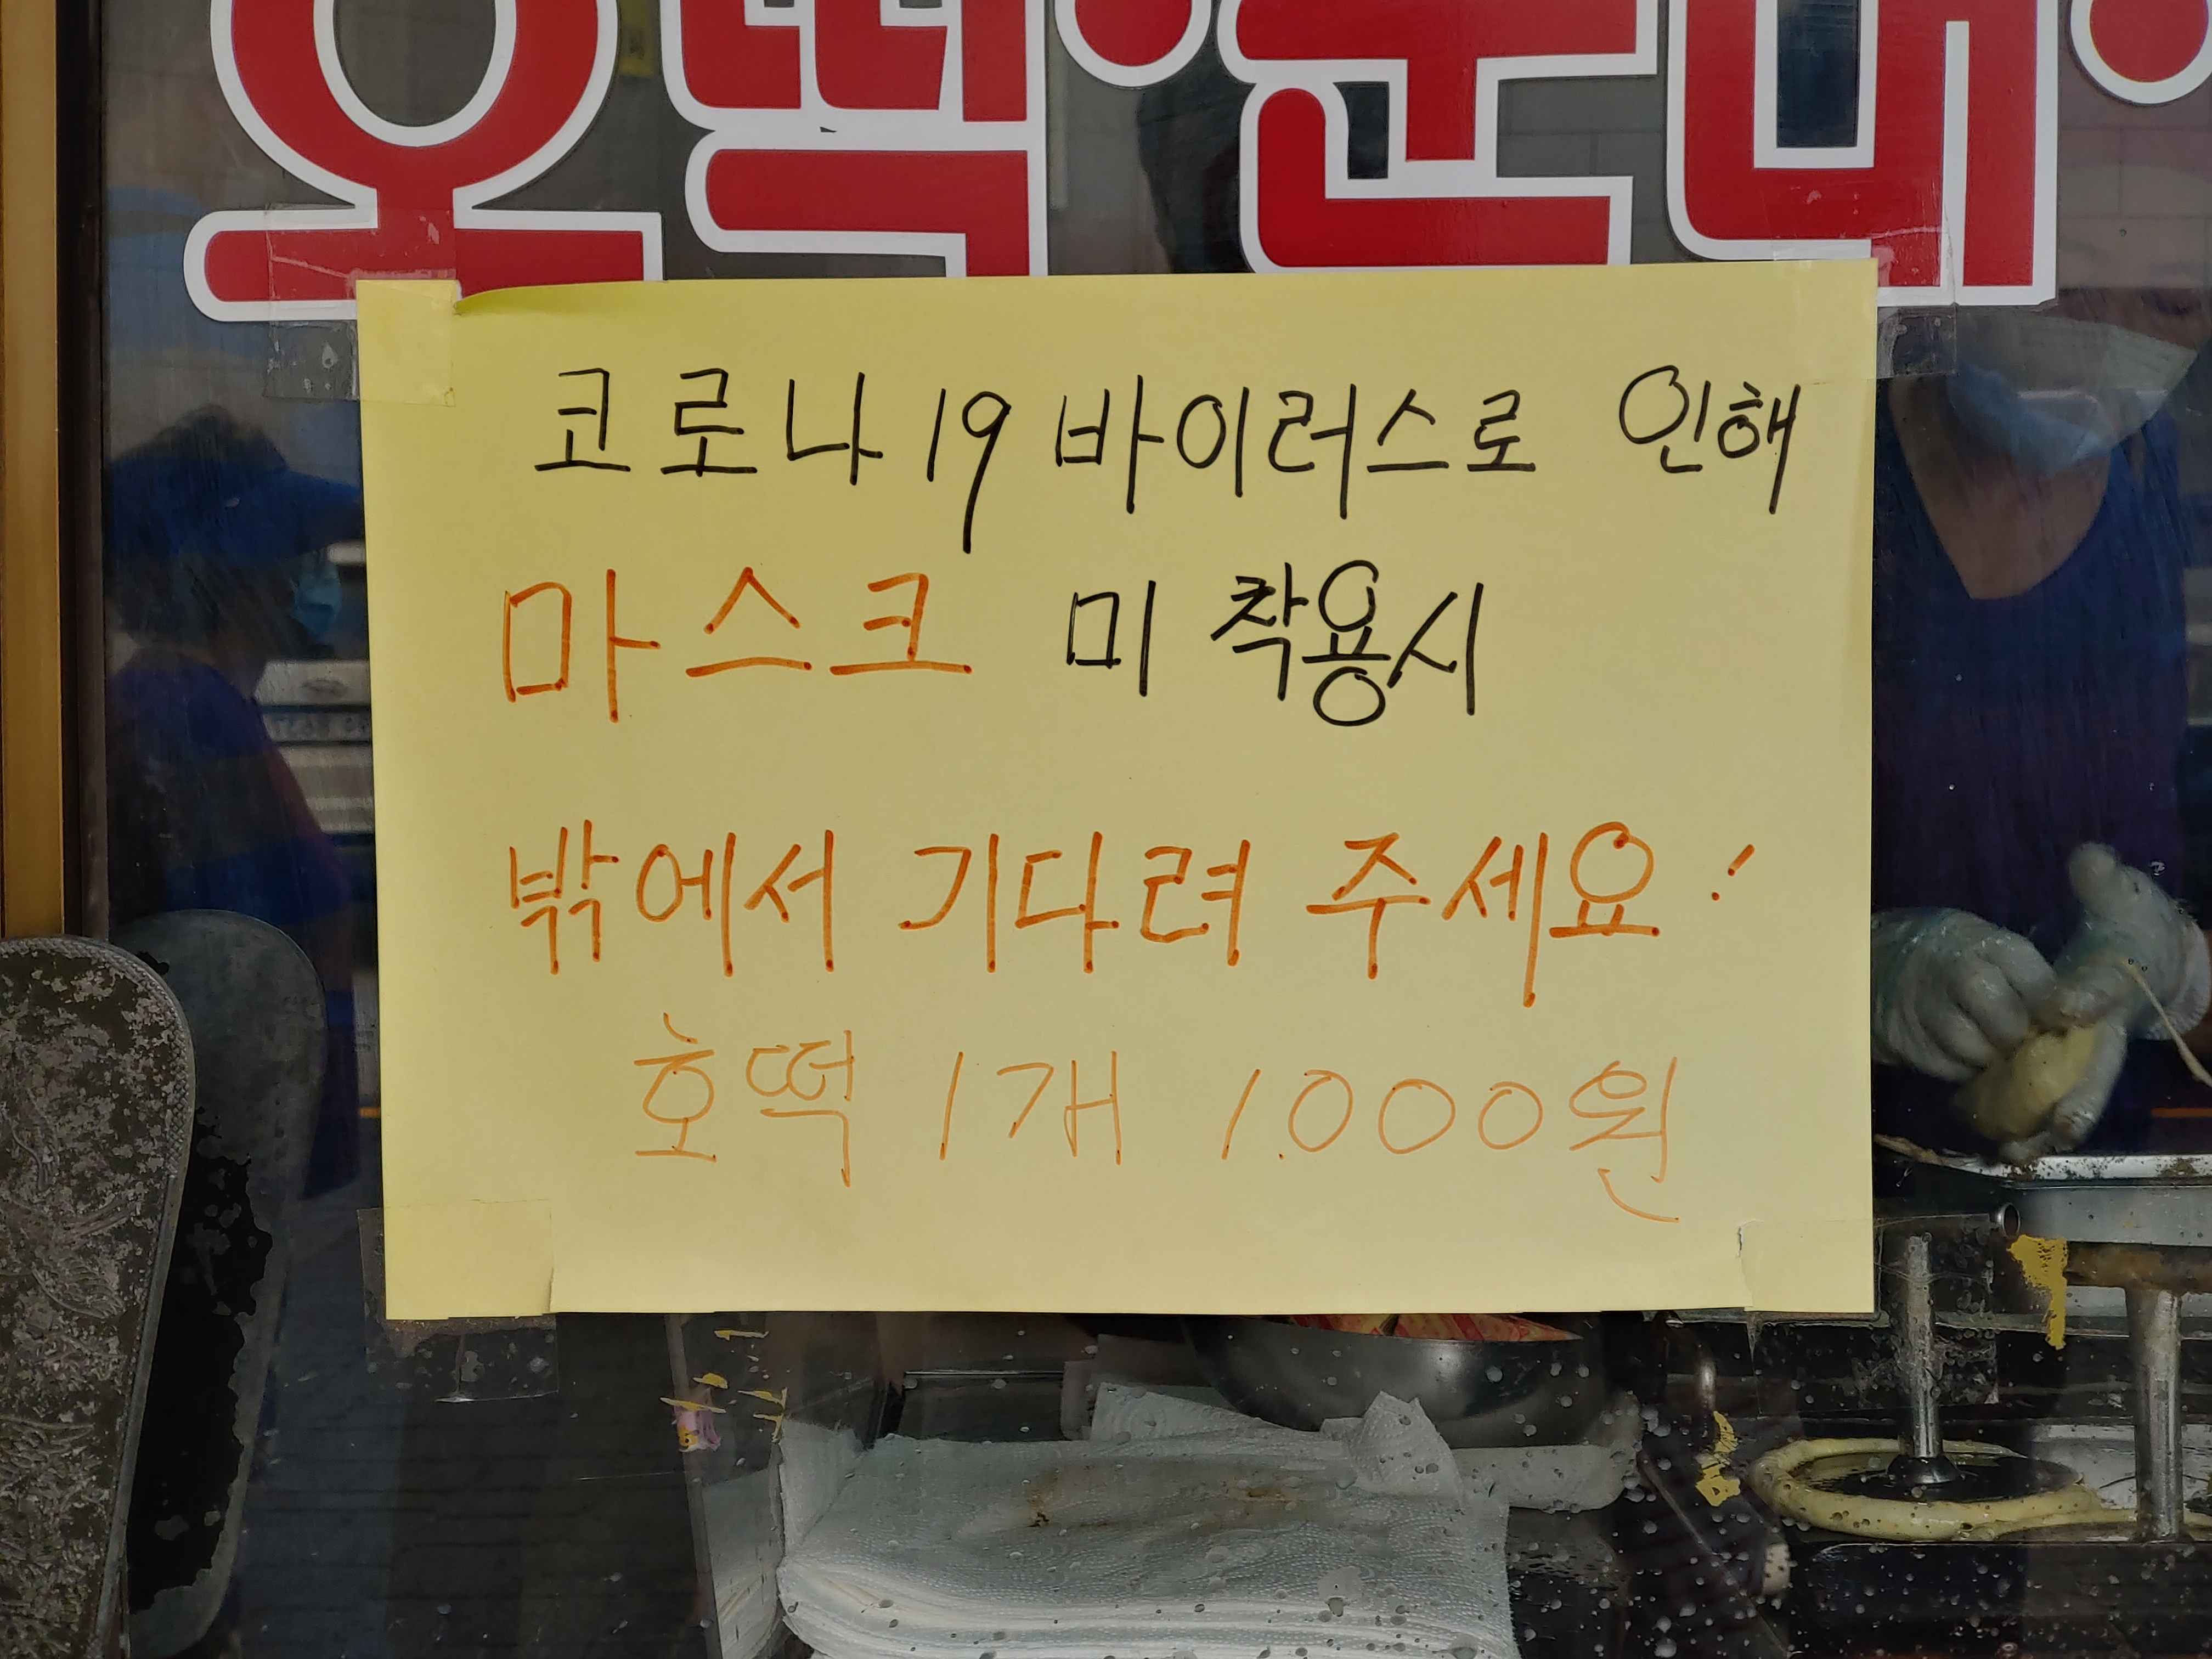 호떡·순대·
코로나19 바이러스로 인해
마스크 미 착용시
밖에서 기다려 주세요!
호떡 1개 1.000원